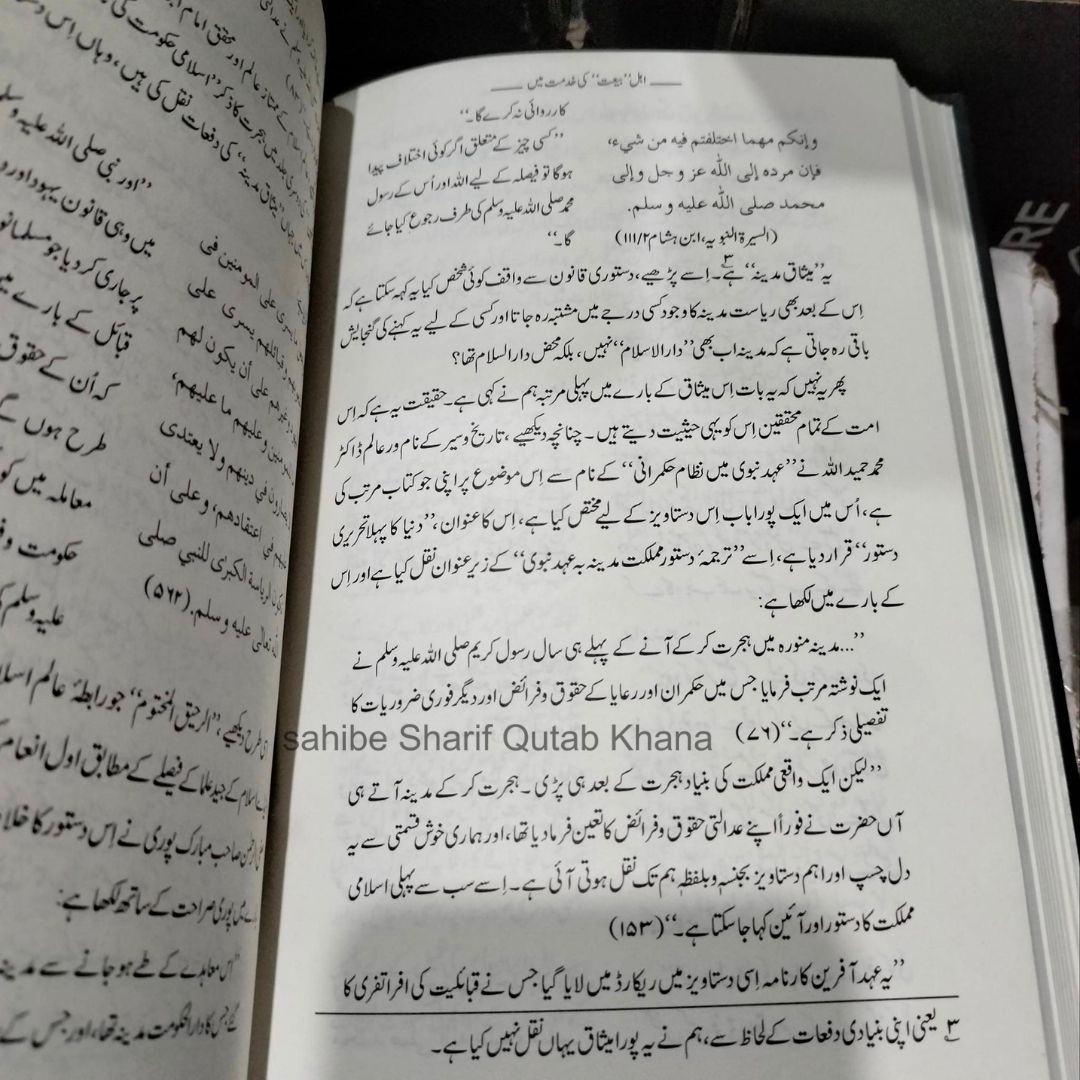 اہل ”بیعت“ کی خدمت میں
کارروائی نہ کرے گا۔“
وإنكم مهما اختلفتم فيه من شيء،
”کسی چیز کے متعلق اگر کوئی اختلاف پیدا
فإن مرده إلى الله عز و جل وإلى
ہوگا تو فیصلہ کے لیے اللہ اور اُس کے رسول
محمد صلى الله عليه و سلم.
محمد صلی اللہ علیہ وسلم کی طرف رجوع کیا جائے
(السيرة النبویہ، ابن ہشام ۲/ ۱۱۱)
گا۔“
یہ ”میثاق مدینہ“ ہے۳۔ اِسے پڑھیے، دستوری قانون سے واقف کوئی شخص کیا یہ کہہ سکتا ہے کہ
اِس کے بعد بھی ریاست مدینہ کا وجود کسی درجے میں مشتبہ رہ جاتا اور کسی کے لیے یہ کہنے کی گنجایش
باقی رہ جاتی ہے کہ مدینہ اب بھی ”دار الاسلام“ نہیں، بلکہ محض دار السلام تھا؟
پھر یہ نہیں کہ یہ بات اِس میثاق کے بارے میں پہلی مرتبہ ہم نے کہی ہے۔ حقیقت یہ ہے کہ اِس
امت کے تمام محققین اِس کو یہی حیثیت دیتے ہیں۔ چنانچہ دیکھیے، تاریخ وسیر کے نام ور عالم ڈاکٹر
محمد حمید اللہ نے ”عہد نبوی میں نظام حکمرانی“ کے نام سے اِس موضوع پر اپنی جو کتاب مرتب کی
ہے، اُس میں ایک پورا باب اِس دستاویز کے لیے مختص کیا ہے، اِس کا عنوان، ”دنیا کا پہلا تحریری
دستور“ قرار دیا ہے، اِسے ”ترجمۂ دستور مملکت مدینہ بہ عہد نبوی“ کے زیر عنوان نقل کیا ہے اور اِس
کے بارے میں لکھا ہے:
”...مدینہ منورہ میں ہجرت کر کے آنے کے پہلے ہی سال رسول کریم صلی اللہ علیہ وسلم نے
ایک نوشتہ مرتب فرمایا جس میں حکمران اور رعایا کے حقوق و فرائض اور دیگر فوری ضروریات کا
تفصیلی ذکر ہے۔“ (۷۶)
sahibe Sharif Qutab Khana
”لیکن ایک واقعی مملکت کی بنیاد ہجرت کے بعد ہی پڑی۔ ہجرت کر کے مدینہ آتے ہی
آں حضرت نے فوراً اپنے عدالتی حقوق و فرائض کا تعین فرما دیا تھا، اور ہماری خوش قسمتی سے یہ
دل چسپ اور اہم دستاویز بجنسہٖ و بلفظہٖ ہم تک نقل ہوتی آئی ہے۔ اِسے سب سے پہلی اسلامی
مملکت کا دستور اور آئین کہا جا سکتا ہے۔“ (۱۵۳)
”یہ عہد آفرین کارنامہ اِسی دستاویز میں ریکارڈ میں لایا گیا جس نے قبائلیت کی افراتفری کا
۳ یعنی اپنی بنیادی دفعات کے لحاظ سے، ہم نے یہ پورا میثاق یہاں نقل نہیں کیا ہے۔
”اور نبی صلی اللہ علیہ وسلم
میں وہی قانون یہود اور
پر جاری کر دیا جو مسلمانوں
قبائل کے بارے میں
کہ اُن کے حقوق
طرح ہوں گے
معاملہ میں کو
حکومت و
علیہ وسلم
على المومنين فى
وقبائلهم يسرى على
على أن يكون لهم
وعليهم ما عليهم،
فى دينهم ولا يعتدى
فى اعتقادهم، وعلى أن
الرياسة الكبرى للنبي صلى
تعالى عليه و سلم. (۵۶۲)
طرح دیکھیے، ”الرحیق المختوم“ جو رابطۂ عالم اسلا
اسلام کے جید علما کے فیصلے کے مطابق اول انعام
صاحب مبارک پوری نے اِس دستور کا خلا
میں پوری صراحت کے ساتھ لکھا ہے:
”اس معاہدے کے طے ہو جانے سے مدینہ
جس کا دار الحکومت مدینہ تھا، اور جس کے